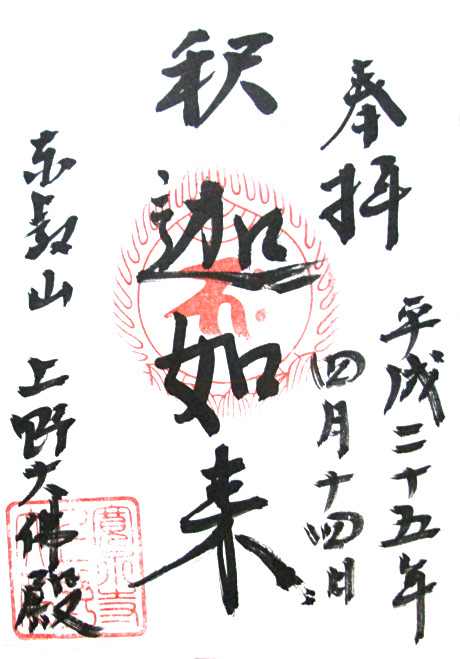 奉拝
平成二十五年
四月十四日
釈迦如来
东叡山 上野大佛殿